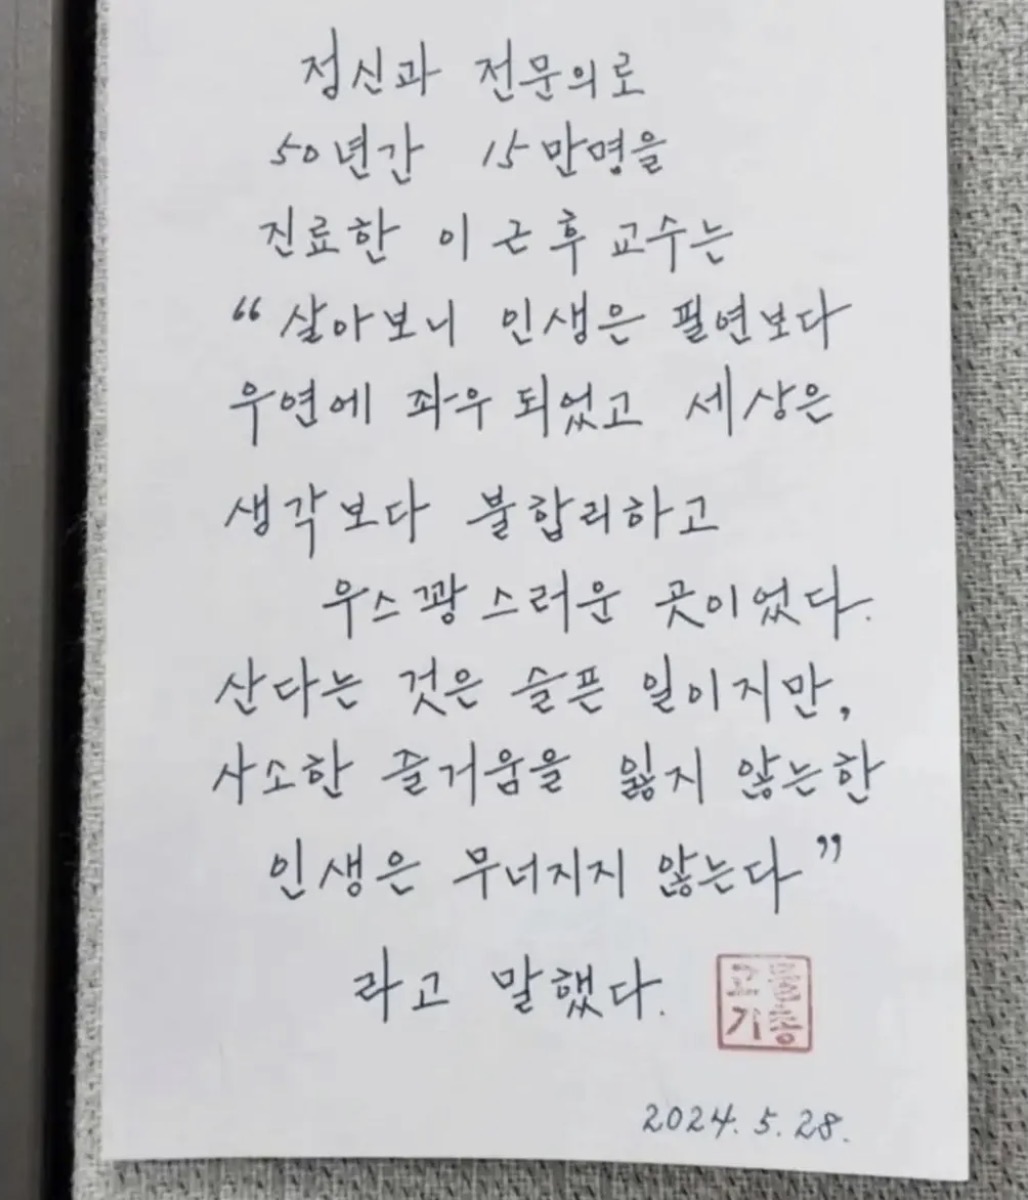 정신과 전문의로
50년간 15만명을
진료한 이근후 교수는
“살아보니 인생은 필연보다
우연에 좌우 되었고 세상은
생각보다 불합리하고
우스꽝스러운 곳이었다.
산다는 것은 슬픈 일이지만,
사소한 즐거움을 잃지 않는한
인생은 무너지지 않는다”
라고 말했다.
고
기
2024. 5. 28.